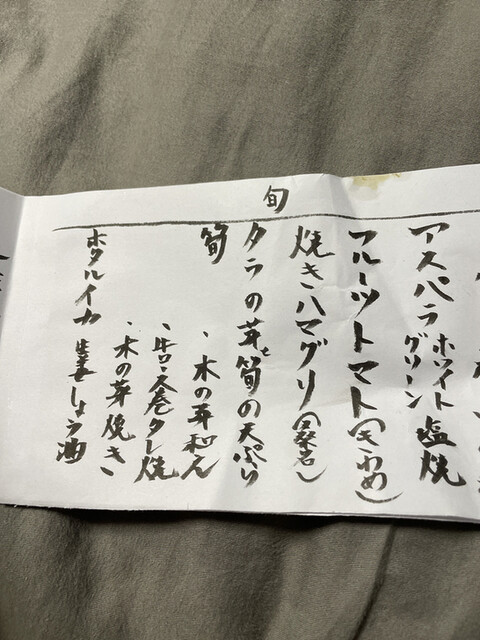 旬
アスパラ ホワイト グリーン 塩焼
フルーツトマト(きわめ)
焼きハマグリ(桑名)
タラの芽と筍の天ぷら
筍
、木の芽和え
、タレ焼
、木の芽焼き、
ホタルイカ 生姜しょう油